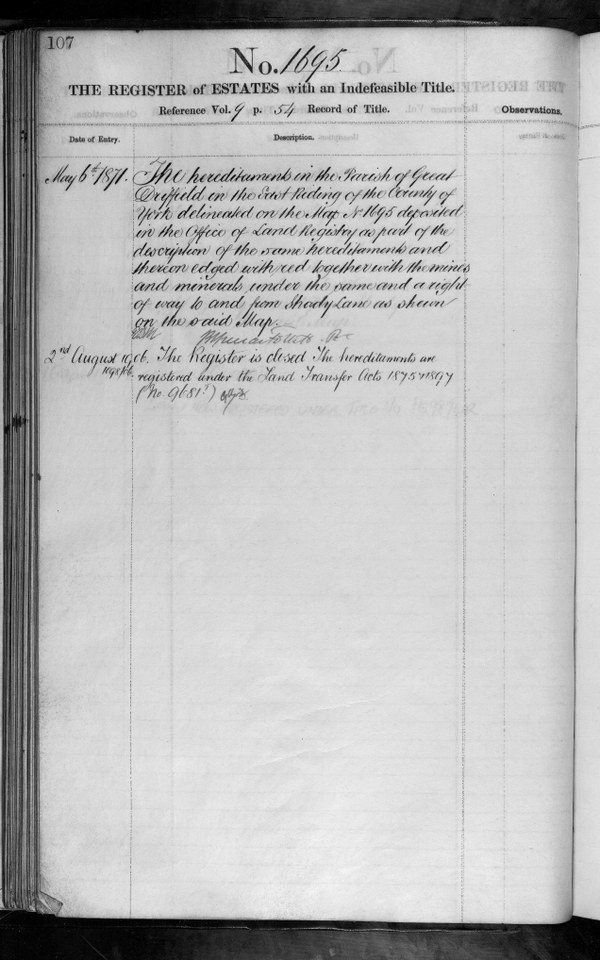 107
No. 1695
THE REGISTER of ESTATES with an Indefeasible Title.
Reference Vol. 9 p. 54 Record of Title.
Observations.
Date of Entry.
Description.
May 6th 1871. The hereditaments in the Parish of Great
Driffield in the East Riding of the County of
York delineated on the Map No 1695 deposited
in the Office of Land Registry as part of the
description of the same hereditaments and
thereon edged with red together with the mines
and minerals under the same and a right
of way to and from Shady Lane as shewn
on the said Map.
2nd August 1906. The Register is closed The hereditaments are
registered under the Land Transfer Acts 1875 & 1897
(No. 9681